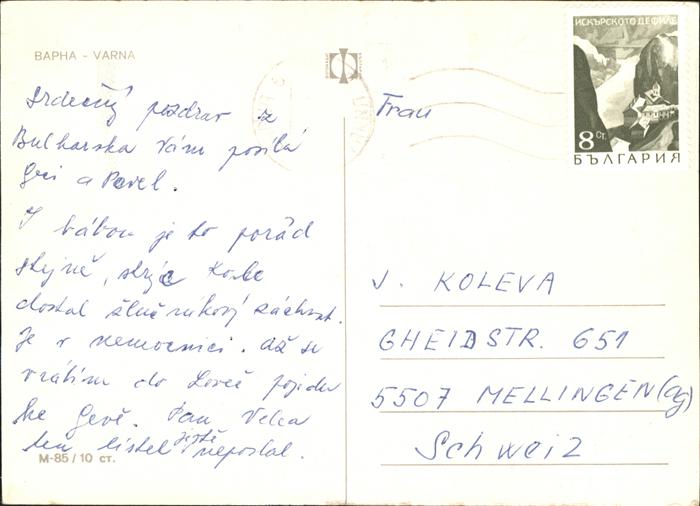 ВАРНА - VARNA
Srdečný pozdrav z
Bulharska Vám posílá
a Pavel.
S bábou je to pořád
stejné, strýc
dostal žlučníkový záchvat.
Je v nemocnici. Až se
vrátím do Loveč pojedu
ke Geně. Pan Velca
ten lístek jistě neposlal.
М-85/10 ст.
Frau
J. KOLEVA
GHEIDSTR. 651
5507 MELLINGEN (ag)
Schweiz
ИСКЪРСКОТО ДЕФИЛЕ
8 Ст.
БЪЛГАРИЯ